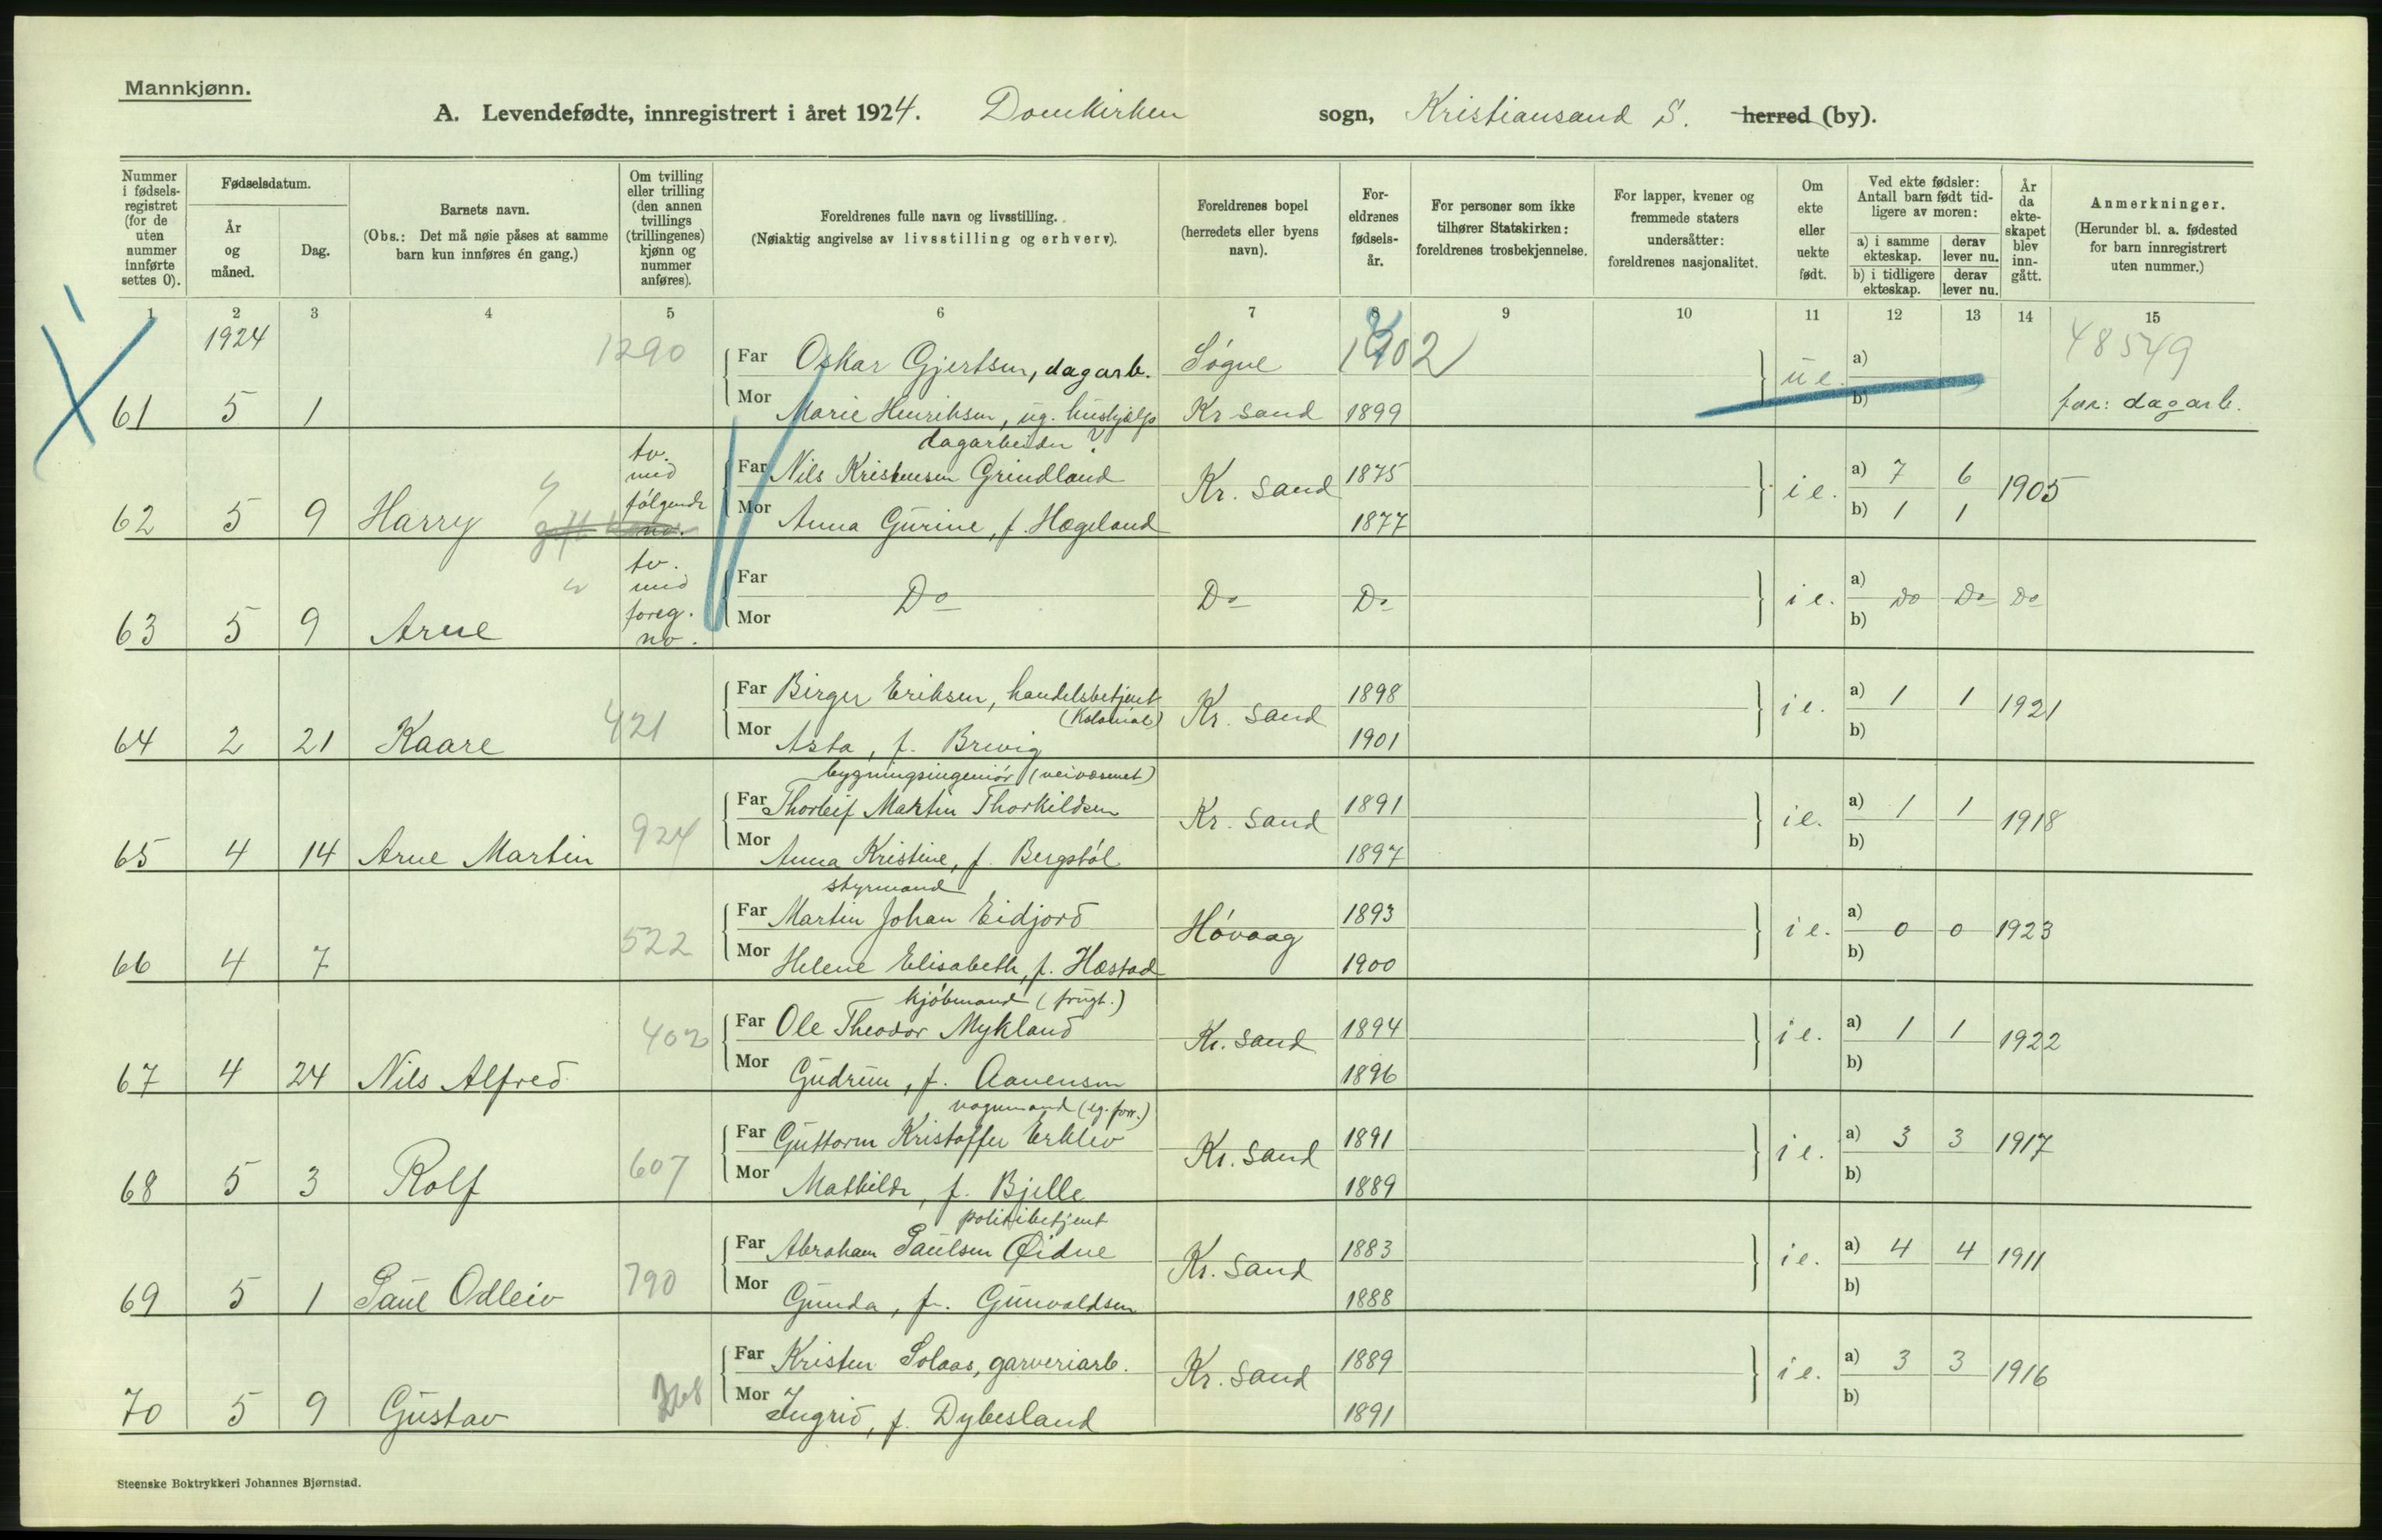 Mannkjønn.
A. Levendefødte, innregistrert i året 1924. Domkirken sogn, Kristiansand S. herred (by).
Nummer i fødsels-registret (for de uten nummer innførte settes 0).
Fødselsdatum.
År og måned.
Dag.
Barnets navn.
(Obs.: Det må nøie påses at samme barn kun innføres én gang.)
Om tvilling eller trilling (den annen tvillings (trillingenes) kjønn og nummer anføres).
Foreldrenes fulle navn og livsstilling.
(Nøiaktig angivelse av livsstilling og erhverv).
Foreldrenes bopel (herredets eller byens navn).
For-eldrenes fødsels-år.
For personer som ikke tilhører Statskirken: foreldrenes trosbekjennelse.
For lapper, kvener og fremmede staters undersåtter: foreldrenes nasjonalitet.
Om ekte eller uekte født.
Ved ekte fødsler: Antall barn født tid-ligere av moren:
a) i samme ekteskap. derav lever nu.
b) i tidligere ekteskap. derav lever nu.
År da ekte-skapet blev inn-gått.
Anmerkninger.
(Herunder bl. a. fødested for barn innregistrert uten nummer.)
1 2 3 4 5 6 7 8 9 10 11 12 13 14 15
1924 1290 Far Oskar Gjertsen, dagarb. Søgne 1902 a) 48549
61 5 1 Mor Marie Henriksen, ug. hushjælp Kr sand 1899 u e. b) far: dagarb.
dagarbeider ?
62 5 9 Harry tv. med følgende no. Far Nils Kristensen Grindland Kr. sand 1875 i e. a) 7 6 1905
Mor Anna Gurine, f. Hægeland 1877 b) 1 1
63 5 9 Arne tv. med foreg. no. Far Mor Do Do Do i e. a) b) Do Do Do
64 2 21 Kaare 421 Far Birger Eriksen, handelsbetjent (Kolonial) Kr. sand 1898 i e. a) 1 1 1921
Mor Asta, f. Brevig 1901 b)
bygningsingeniør (veivæsenet)
65 4 14 Arne Martin 924 Far Thorleif Martin Thorkildsen Kr. sand 1891 i e. a) 1 1 1918
Mor Anna Kristine, f. Bergstøl 1897 b)
styrmand
66 4 7 522 Far Martin Johan Eidjord Høvaag 1893 i e. a) 0 0 1923
Mor Helene Elisabeth, f. Hæstad 1900 b)
kjøbmand (frugt.)
67 4 24 Nils Alfred 402 Far Ole Theodor Mykland Kr. sand 1894 i e. a) 1 1 1922
Mor Gudrun, f. Aanensen 1896 b)
vognmand (eg. forr.)
68 5 3 Rolf 607 Far Guttorm Kristoffer Erklev Kr. sand 1891 i e. a) 3 3 1917
Mor Mathilde, f. Bjelle 1889 b)
politibetjent
69 5 1 Paul Odleiv 790 Far Abraham Paulsen Øidne Kr. sand 1883 i e. a) 4 4 1911
Mor Gunda, f. Gunvaldsen 1888 b)
70 5 9 Gustav Far Kristen Solaas, garveriarb. Kr. sand 1889 i e. a) 3 3 1916
Mor Ingrid, f. Dybesland 1891 b)
Steenske Boktrykkeri Johannes Bjørnstad.